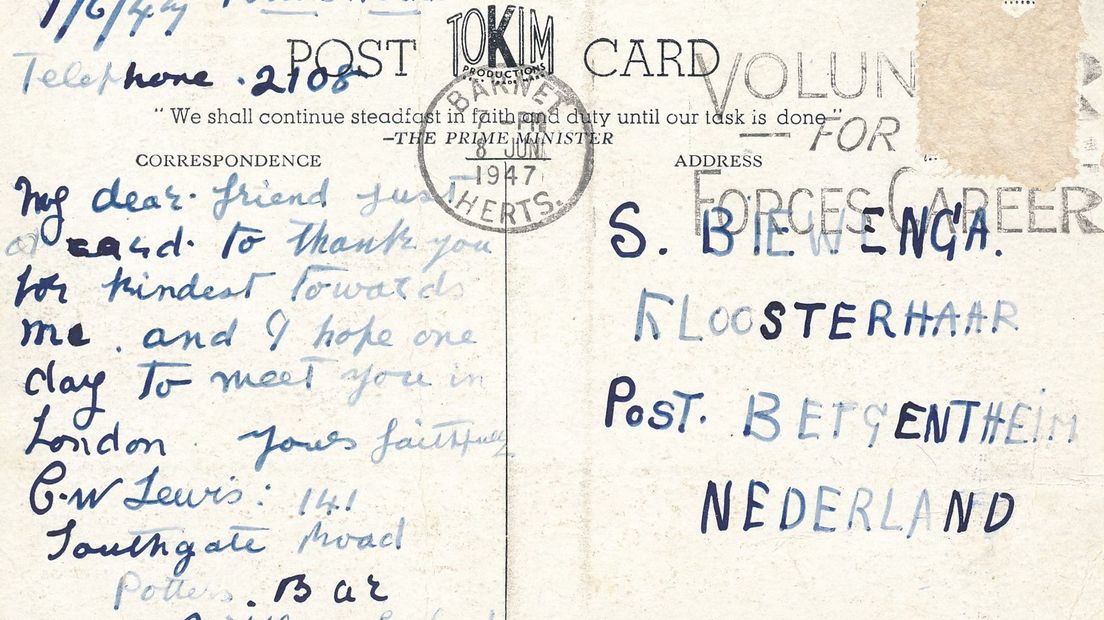 Telephone . 2108
POST TOKIM CARD
PRODUCTIONS
BARNET
7 - PM
8 JUN
1947
HERTS.
VOLUN
FOR
FORCES CAREER
" We shall continue steadfast in faith and duty until our task is done "
-THE PRIME MINISTER
CORRESPONDENCE
My dear friend just
a card to thank you
for kindest towards
me. and I hope one
day to meet you in
London. yours faithfully
C.W Lewis: 141
Southgate Road
Potters. Bar
ADDRESS
S. BIEWENGA.
KLOOSTERHAAR
POST. BERGENTHEIM
NEDERLAND